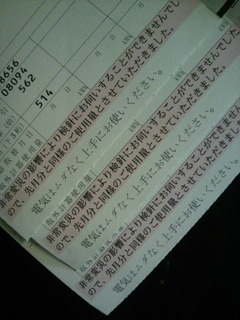 8656
08094
562
514
非常変災の影響により検針にお伺いすることができませんでした
ので、先月分と同様のご使用量とさせていただきました。
電気はムダなく上手にお使いください。
非常変災の影響により検針にお伺いすることができませんでした
ので、先月分と同様のご使用量とさせていただきました。
電気はムダなく上手にお使いください。
非常変災の影響により検針にお伺いすることができませんでした
ので、先月分と同様のご使用量とさせていただきました。
電気はムダなく上手にお使いください。